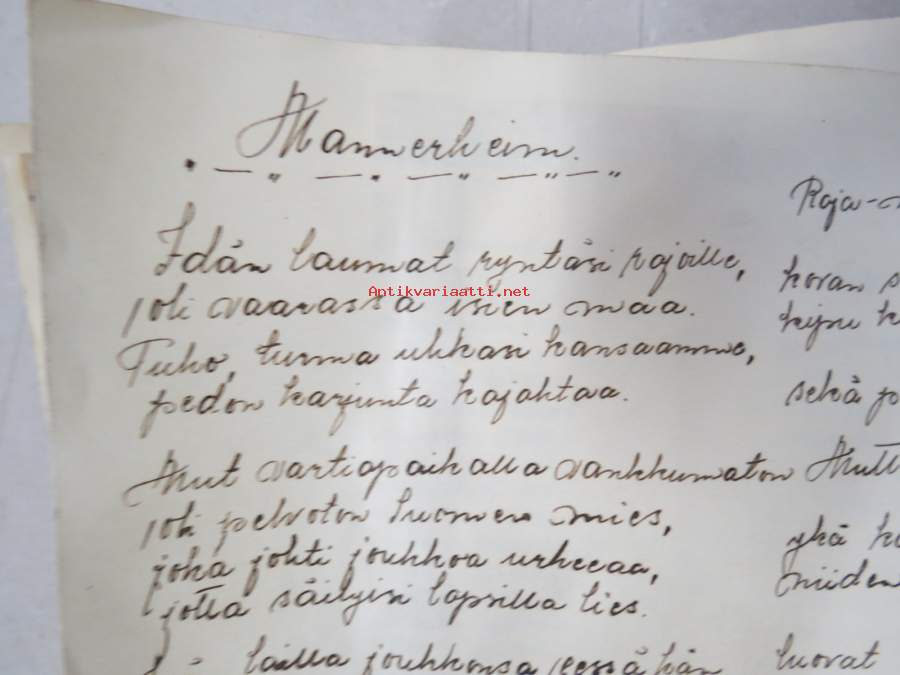 Mannerheim.
Idän laumat ryntäsi rajoille,
joli vaarassa isien maa.
Antikvariaatti.net
Tuho, turma uhkasi kansaamme,
pedon karjunta kajahtaa.
Mut vartiopaikalla vankkumaton
joli pelvoton Suomen mies,
joka johti joukkoa urheeaa,
jotta säilyisi lapsilla lies.
lailla joukkonsa eessä hän
Raja-
koran
sekä
Mutt
niiden
luovat